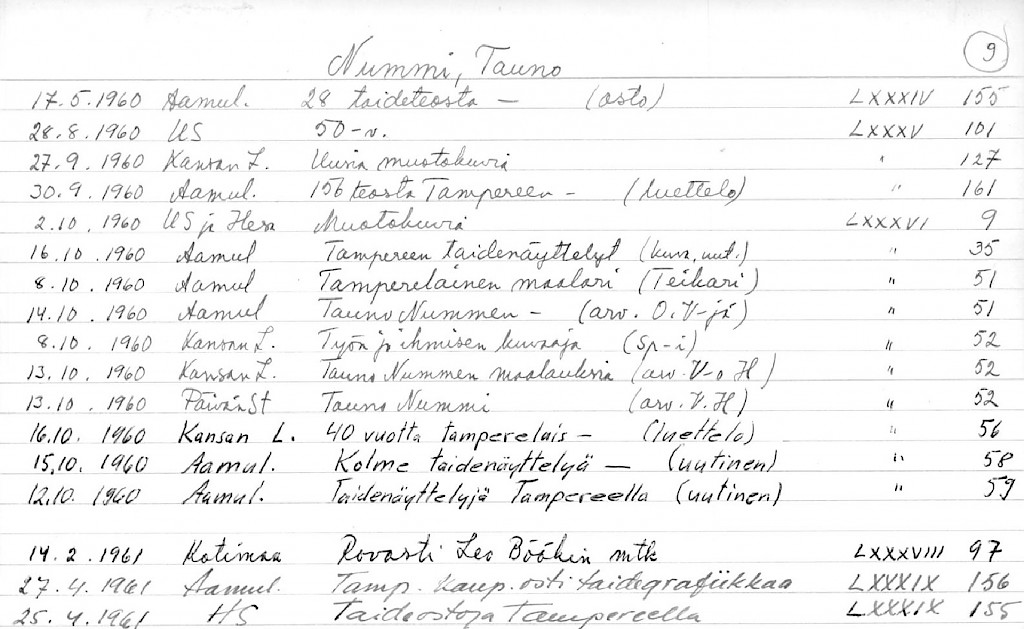 9
Nummi, Tauno
17.5.1960 Aamul. 28 taideteosta - (osto) LXXXIV 155
28.8.1960 US 50-v. LXXXV 101
27.9.1960 Kansan L. Uusia muotokuvia " 127
30.9.1960 Aamul. 156 teosta Tampereen - (luettelo) " 161
2.10.1960 US ja Hesa Muotokuvia LXXXVI 9
16.10.1960 Aamul Tampereen taidenäyttelyt (kuva, uut.) " 35
8.10.1960 Aamul Tamperelainen maalari (Teikari) " 51
14.10.1960 Aamul Tauno Nummen - (arv. O.V-jä) " 51
8.10.1960 Kansan L. Työn ja ihmisen kuvaaja (Sp-i) " 52
13.10.1960 Kansan L. Tauno Nummen maalauksia (arv. V-o H) " 52
13.10.1960 PäivänSt Tauno Nummi (arv. V.H) " 52
16.10.1960 Kansan L. 40 vuotta tamperelais - (luettelo) " 56
15.10.1960 Aamul. Kolme taidenäyttelyä - (uutinen) " 58
12.10.1960 Aamul. Taidenäyttelyjä Tampereella (uutinen) " 59
14.2.1961 Kotimaa Rovasti Leo Böökin mtk LXXXVIII 97
27.4.1961 Aamul. Tamp. kaup. osti taidegrafiikkaa LXXXIX 156
25.4.1961 HS Taideostoja Tampereella LXXXIX 155